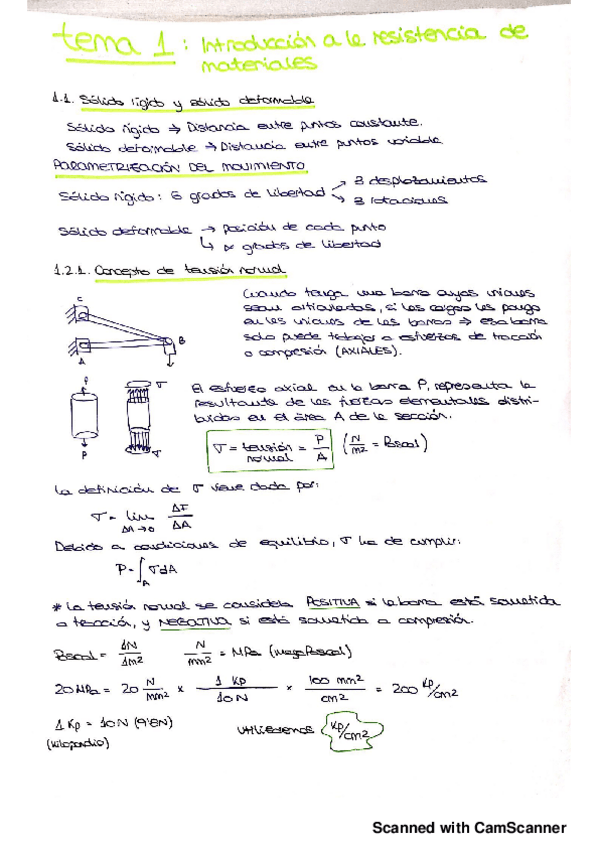 tema 1: Introducción a la resistencia de
materiales
1.1. Sólido rígido y sólido deformable
Sólido rígido → Distancia entre puntos constante.
Sólido deformable → Distancia entre puntos variable
PARAMETRIZACIÓN DEL MOVIMIENTO
Sólido rígido: 6 grados de libertad
3 desplazamientos
3 rotaciones
Sólido deformable → posición de cada punto
↳ ∞ grados de libertad
1.2.1. Concepto de tensión normal
C
B
A
Cuando tenga una barra cuyas uniones
sean articuladas, si las cargas las pongo
en las uniones de las barras ⇒ esa barra
solo puede trabajar a esfuerzos de tracción
o compresión (AXIALES).
P
P
σ
σ
El esfuerzo axial en la barra P, representa la
resultante de las fuerzas elementales distri-
buidas en el área A de la sección.
σ = tensión normal = P/A (N/m2 = Pascal)
La definición de σ viene dada por:
σ = lim ΔA→0 ΔF/ΔA
Debido a condiciones de equilibrio, σ ha de cumplir:
P = ∫A σdA
* La tensión normal se considera POSITIVA si la barra está sometida
a tracción, y NEGATIVA si está sometida a compresión.
Pascal = 1N/1m2 N/mm2 = MPa (megaPascal)
20 MPa = 20 N/mm2 × 1 Kp/10N × 100 mm2/cm2 = 200 Kp/cm2
1 Kp = 10N (9'8N)
(kilopondio)
Utilizaremos Kp/cm2
Scanned with CamScanner